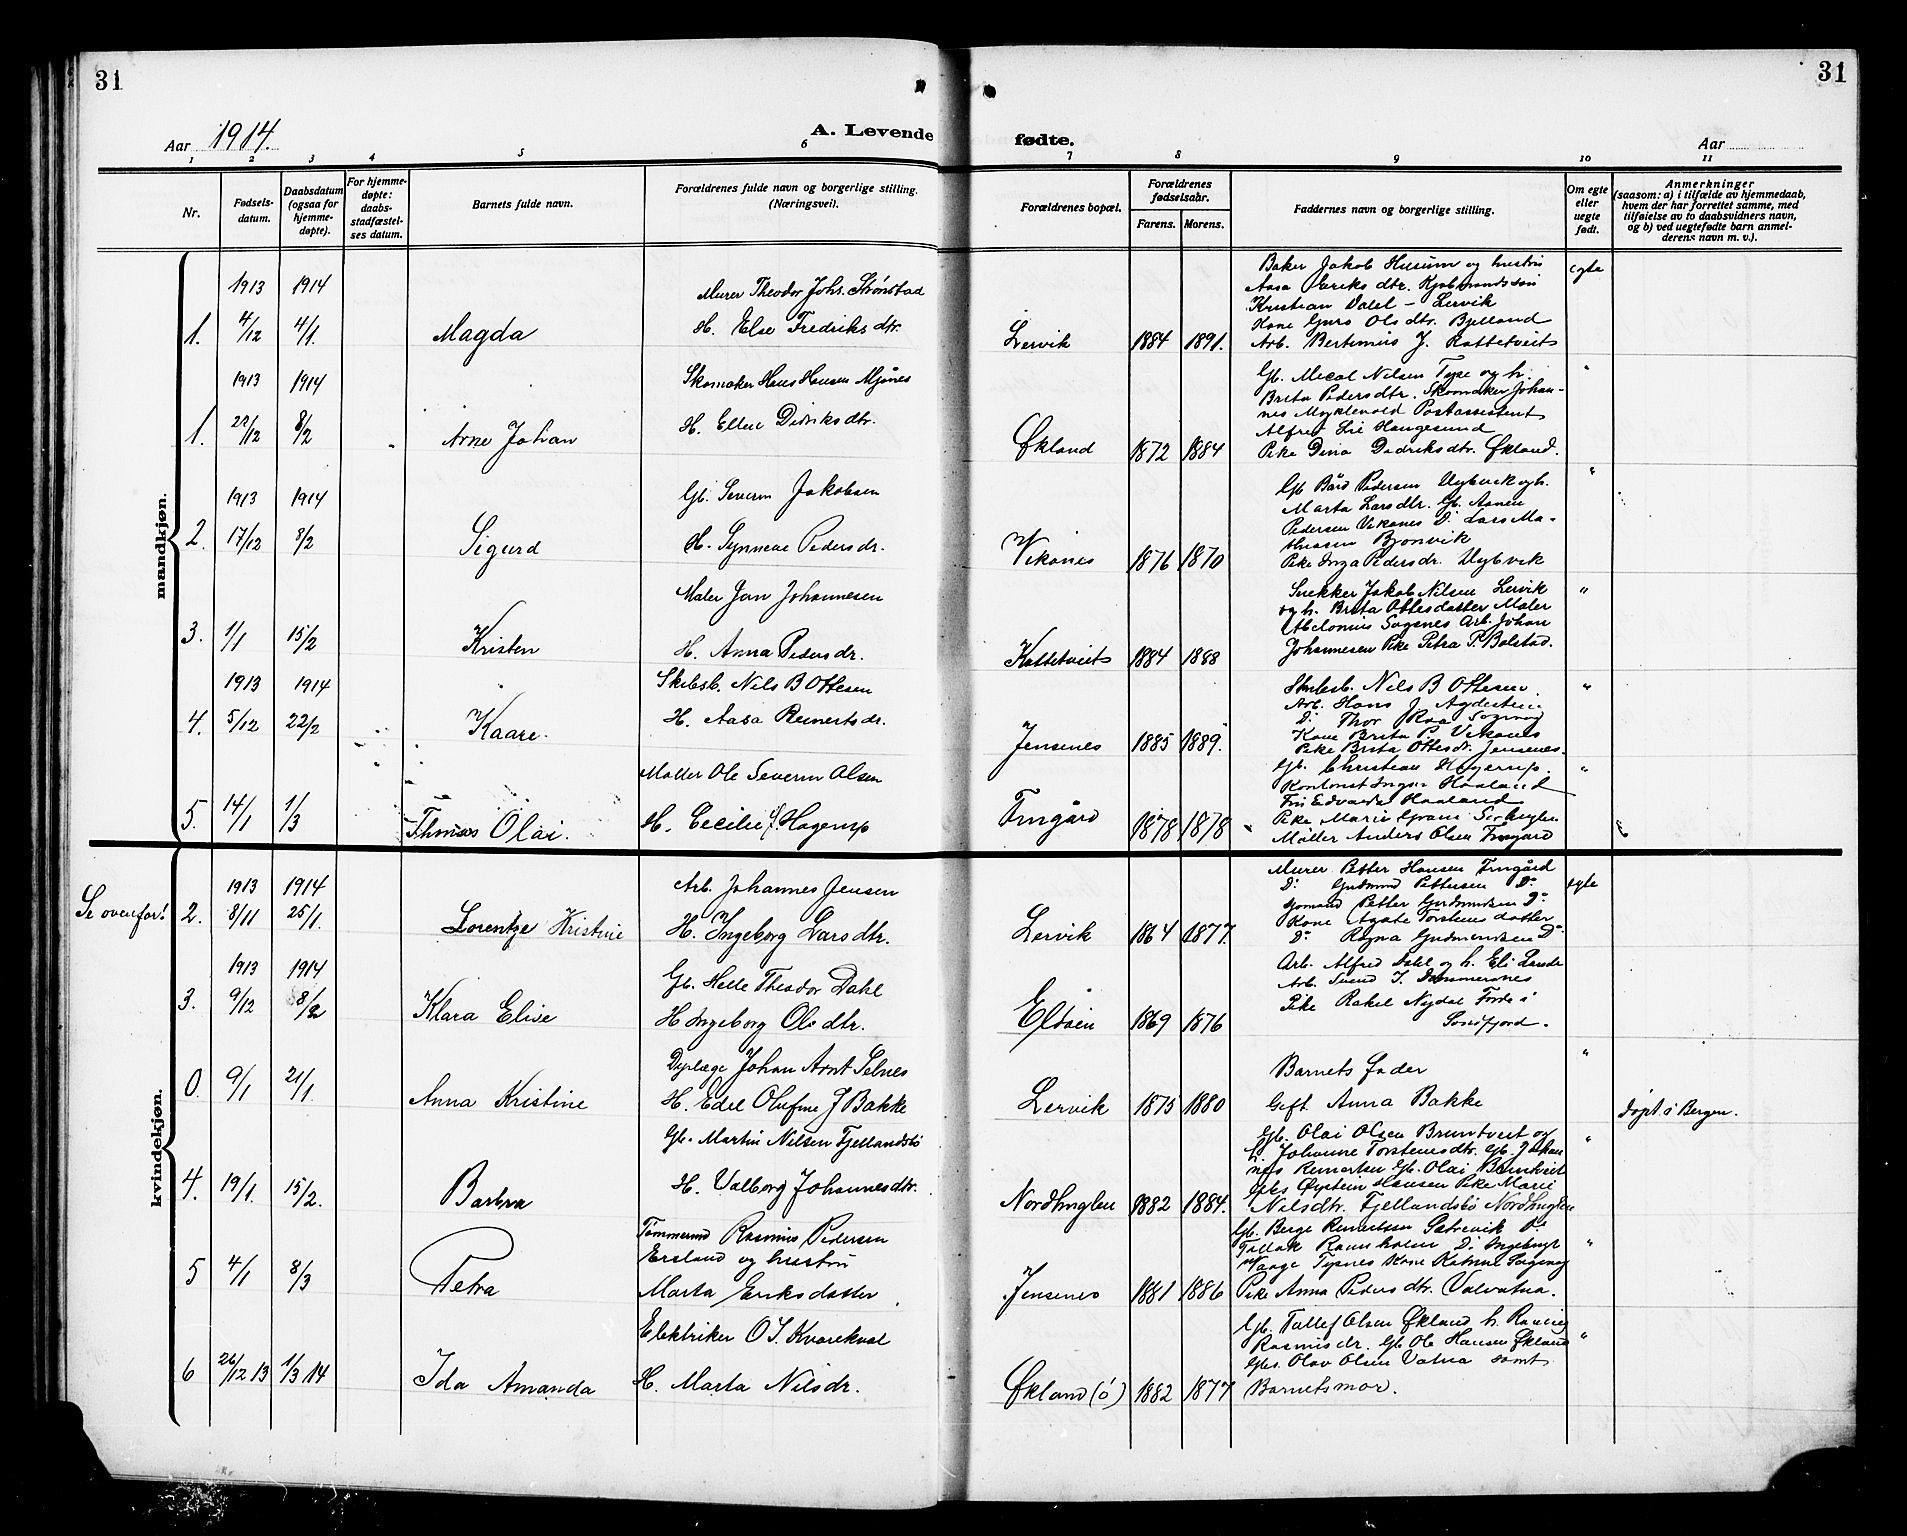 31
31
Aar 1914.
A. Levende
fødte.
Aar
1 2 3 4 5 6 7 8 9 10 11
Nr.
Fødsels-
datum.
Daabsdatum
(ogsaa for
hjemme-
døpte).
For hjemme-
døpte:
daabs-
stadfæstel-
ses datum.
Barnets fulde navn.
Forældrenes fulde navn og borgerlige stilling.
(Næringsvei).
Forældrenes bopæl.
Forældrenes
fødselsaar.
Farens. Morens.
Faddernes navn og borgerlige stilling.
Om egte
eller
uegte
født.
Anmerkninger
(saasom: a) i tilfælde av hjemmedaab,
hvem der har forrettet samme, med
tilføielse av to daabsvidners navn,
og b) ved uegtefødte barn anmel-
derens navn m. v.).
mandkjøn.
1913 1914
1. 4/12 4/1. Magda
Murer Theodor Johs. Strønstad
H. Else Fredriksdtr.
Lervik 1884 1891.
Baker Jakob Husum og hustru
Kristian Dalel - Lervik
Kone Guro Olsdtr. Bjelland
Arb. Bertinius J. Kattetveit
egte
1913 1914
1. 22/12 8/2 Arne Johan
Skomaker Hans Hansen Mjånes
H. Ellen Didriksdtr.
Økland 1872 1884
Gb. Mical Nilsen Tyse og h.
Brita Pedersdtr. Skomaker Johan-
nes Myklevold Postassistent
Alfred Lie Haugesund
Pike Dina Didriksdtr. Økland.
"
1913 1914
2. 17/12 8/2 Sigurd
Gb. Severin Jakobsen
H. Synneve Pedersdr.
Vikanes 1876 1870
Gb Bård Pedersen Uglvek og h.
Marta Larsdtr. Gb. Asmen
Pedersen Vikanes D. Lars Ma-
thiasen Bjonvik
Pike Inga Pedersdr. Uglvek
"
3. 1/1 15/2 Kristen
Maler Jon Johannesen
H. Anna Pedersdr.
Kattetveit 1884 1888
Snekker Jakob Nilsen Lervik
og h. Brita Ottesdatter Maler
Abelonius Sagenes Arb. Johan
Johannesen Pike Petra P. Bolstad.
"
1913 1914
4. 5/12 22/2 Kaare.
Skibsb. Nils B Ottesen
H. Aasa Reinertsdr.
Jensenes 1885 1889.
Skibsb. Nils B Ottesen.
Arb. Hans J Agdestein
D: Thor Raa Sogevåg
Kone Brita P. Vikanes
Pike Brita Ottesdr. Jensenes.
"
5. 14/1 1/3 Thomas Olai.
Møller Ole Severin Olsen
H. Cecilie f. Hagerup
Frugård 1878 1878
Gb. Christian Hagerup.
Kontorist Ingv. Haaland
Frk Edvarda Haaland
Pike Marie Gram
Møller Anders Olsen Frugård
"
Se ovenfor!
kvindekjøn.
1913 1914
2. 8/11 25/1. Lorentze Kristine
Arb. Johannes Jensen
H. Ingeborg Larsdtr.
Lervik 1864 1877.
Murer Petter Hansen Frugård
D: Gudmund Pettersen D:
Sjømand Petter Gudmundsen D:
Kone Agate Torstensdatter
D: Ragna Gudmundsen D:
egte
1913 1914
3. 9/12 8/2 Klara Elise
Gb. Helle Theodor Dahl
H Ingeborg Olsdtr.
Eldøen 1869 1876
Arb. Alfred Dahl og h. Eli Lunde
Arb. Svend I. Dommersnes
Pike Rakel Nydal Førde i
Søndfjord.
0. 9/1 21/1. Anna Kristine
Dyrlæge Johan Arnt Selnes
H. Edel Olufine J Bakke
Lervik 1875 1880
Barnets fader
Gift Anna Bakke
"
døpt i Bergen.
4. 19/1. 15/2. Barbra
Gb. Martin Nilsen Fjellandsbø
H. Valborg Johannesdtr.
Nordhuglen 1882 1884.
Gb. Olai Olsen Bruntveit og
h. Johanne Torstensdtr. Gb. Johan
nes Reinertsen Gb. Olai Bruntveit
Gbs Øystein Hansen Pike Marie
Nilsdtr. Fjellandsbø Nordhuglen
"
5 4/1 8/3 Petra
Tømmermd Rasmus Pedersen
Ersland og hustru
Marta Eriksdatter.
Jensenes 1881 1886
Gb. Berge Reinertsen Sætrevik
Tollak Ravnholm D: Ingebrigt
Vaage Tysnes Kone Katrine Sogevåg
Pike Anna Pedersdtr. Valvatna.
"
6 26/12 13 1/3 14 Ida Amanda
Elektriker O I. Kvarekval
H. Marta Nilsdr.
Økland (ö) 1882 1877
Gb. Tollef Olsen Økland h. Rannei
Rasmisdr. Gb Ole Hansen Økland
Gbs. Olav Olsen Vatna samt
Barnets mor.
"